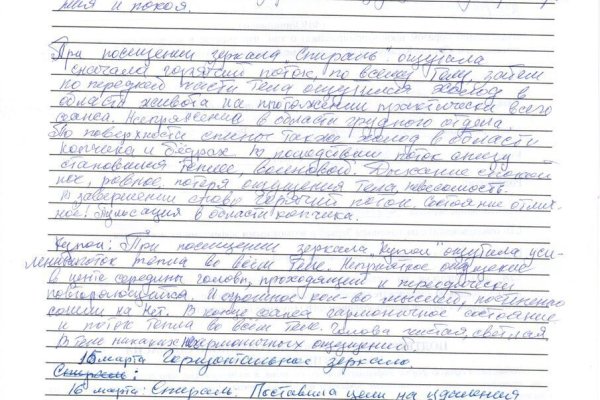 ния и покоя.
При посещении зеркала "Спираль" ощутила
сначала горячий поток, по всему телу, затем
по передней части тела ощущался холод в
области живота на протяжении практически всего
сеанса. Напряжение в области грудного отдела.
По поверхности спины также холод в области
копчика и бёдрах. В последствии поток снизу
становился теплее, волновой. Дыхание спокой
ное, ровное, потеря ощущения тела, невесомость.
В завершении снова горячий поток. Состояние отлич-
ное. Пульсация в области копчика.
Купол: При посещении зеркала "Купол" ощутила уси-
ление поток тепла во всём теле. Неприятное ощущение
в центре середины головы, проходящий и периодически
повторяющийся. И огромное кол-во мыслей, постепенно
сошли на нет. В конце сеанса гармоничное состояние
и поток тепла во всём теле. Голова чистая, светлая
В теле никаких негармоничных ощущений.
15 марта Горизонтальное зеркало.
Спираль:
16 марта: Спираль. Поставила цели на удаления